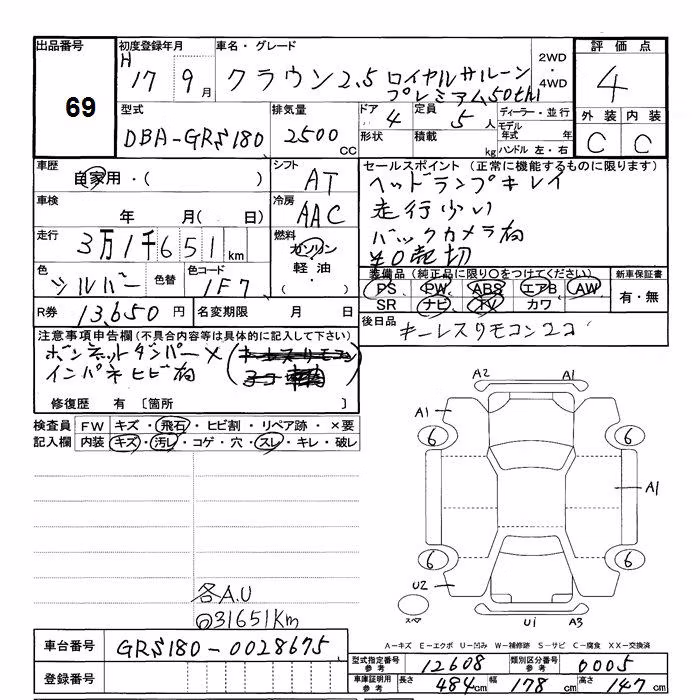 出品番号
69
初度登録年月
H
17 9月
車名・グレード
クラウン2.5 ロイヤルサルーン
プレミアム50th
2WD
・
4WD
評価点
4
外装 内装
C C
型式
DBA-GRS180
排気量
2500
CC
ドア 4
定員 5人
ディーラー・並行
形状
積載 kg
モデル年式 年
ハンドル 左・右
車歴
自家用・( )
シフト
AT
車検
年 月( 日)
冷房
AAC
走行
3万1千651km
燃料
ガソリン
軽油・
・( )
色
シルバー
色替
色コード
1F7
R券 13,650円
名変期限 月 日
セールスポイント (正常に機能するものに限ります)
ヘッドランプキレイ
走行少い
バックカメラ有
¥0売切
装備品 (純正品に限り○をつけてください)
PS PW ABS エアB AW
SR ナビ TV カワ
新車保証書
有・無
後日品
キーレスリモコン2コ
注意事項申告欄(不具合内容等は具体的に記入して下さい)
ボンネットダンパー×
インパネヒビ有
修復歴 有〔箇所 〕
検査員
記入欄
FW キズ・飛石・ヒビ割・リペア跡・×要
内装 キズ・汚レ・コゲ・穴・スレ・キレ・破レ
各A.U
@31651Km
A2 A1
A1
6 6
A1
6 6
U2
スペア
U1 A3
A-キズ E-エクボ U-凹み W-補修跡 S-サビ C-腐食 XX-交換済
車台番号 GRS180-0028675
登録番号
型式指定番号 参考 12608
類別区分番号 参考 0005
車庫証明用 参考 長さ 484cm 幅 178cm 高さ 147cm